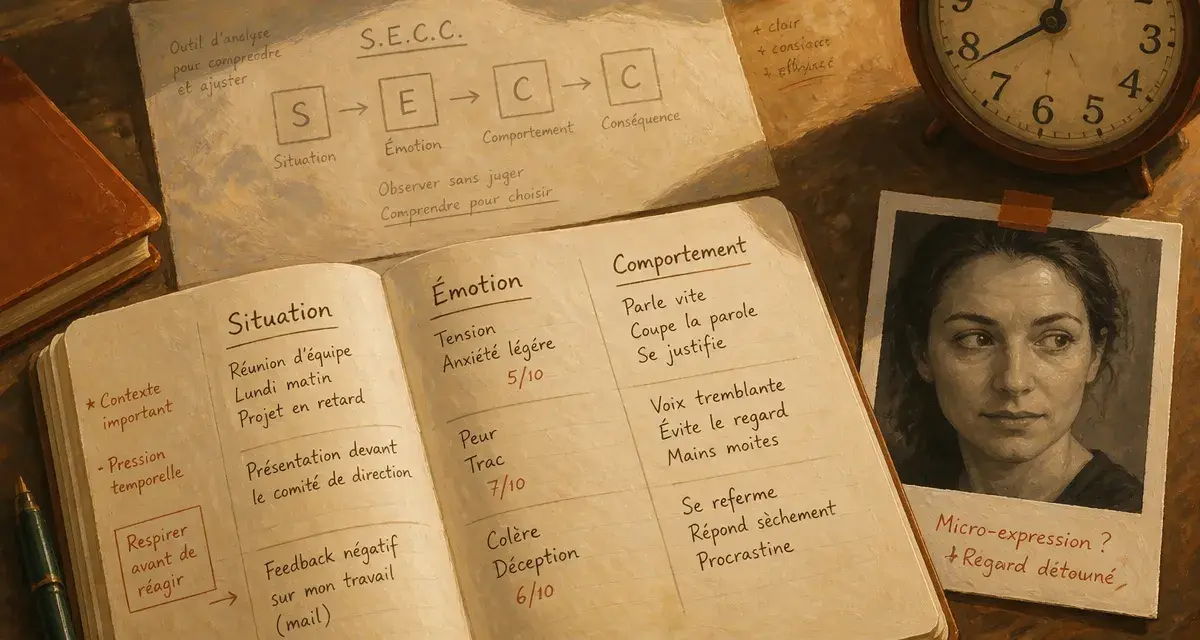 Outil d'analyse
pour comprendre
et ajuster
S.E.C.C.
S → E → C → C
Situation
Émotion
Comportement
Conséquence
Observer sans juger
Comprendre pour choisir
+ clair
9
8
7
6
5
4
3
* Contexte
important
- Pression
temporelle
Respirer
avant de
réagir
→
Situation
Réunion d'équipe
Lundi matin
Projet en retard
Présentation devant
le comité de direction
Feedback négatif
sur mon travail
(mail)
Émotion
Tension
Anxiété légére
5/10
Peur
Trac
7/10
Colère
Déception
6/10
Comportement
Parle vite
Coupe la parole
Se justifie
Voix tremblante
Évite le regard
Mains moites
Se referme
Répond sèchement
Procrastine
Micro-expression ?
Regard détourné